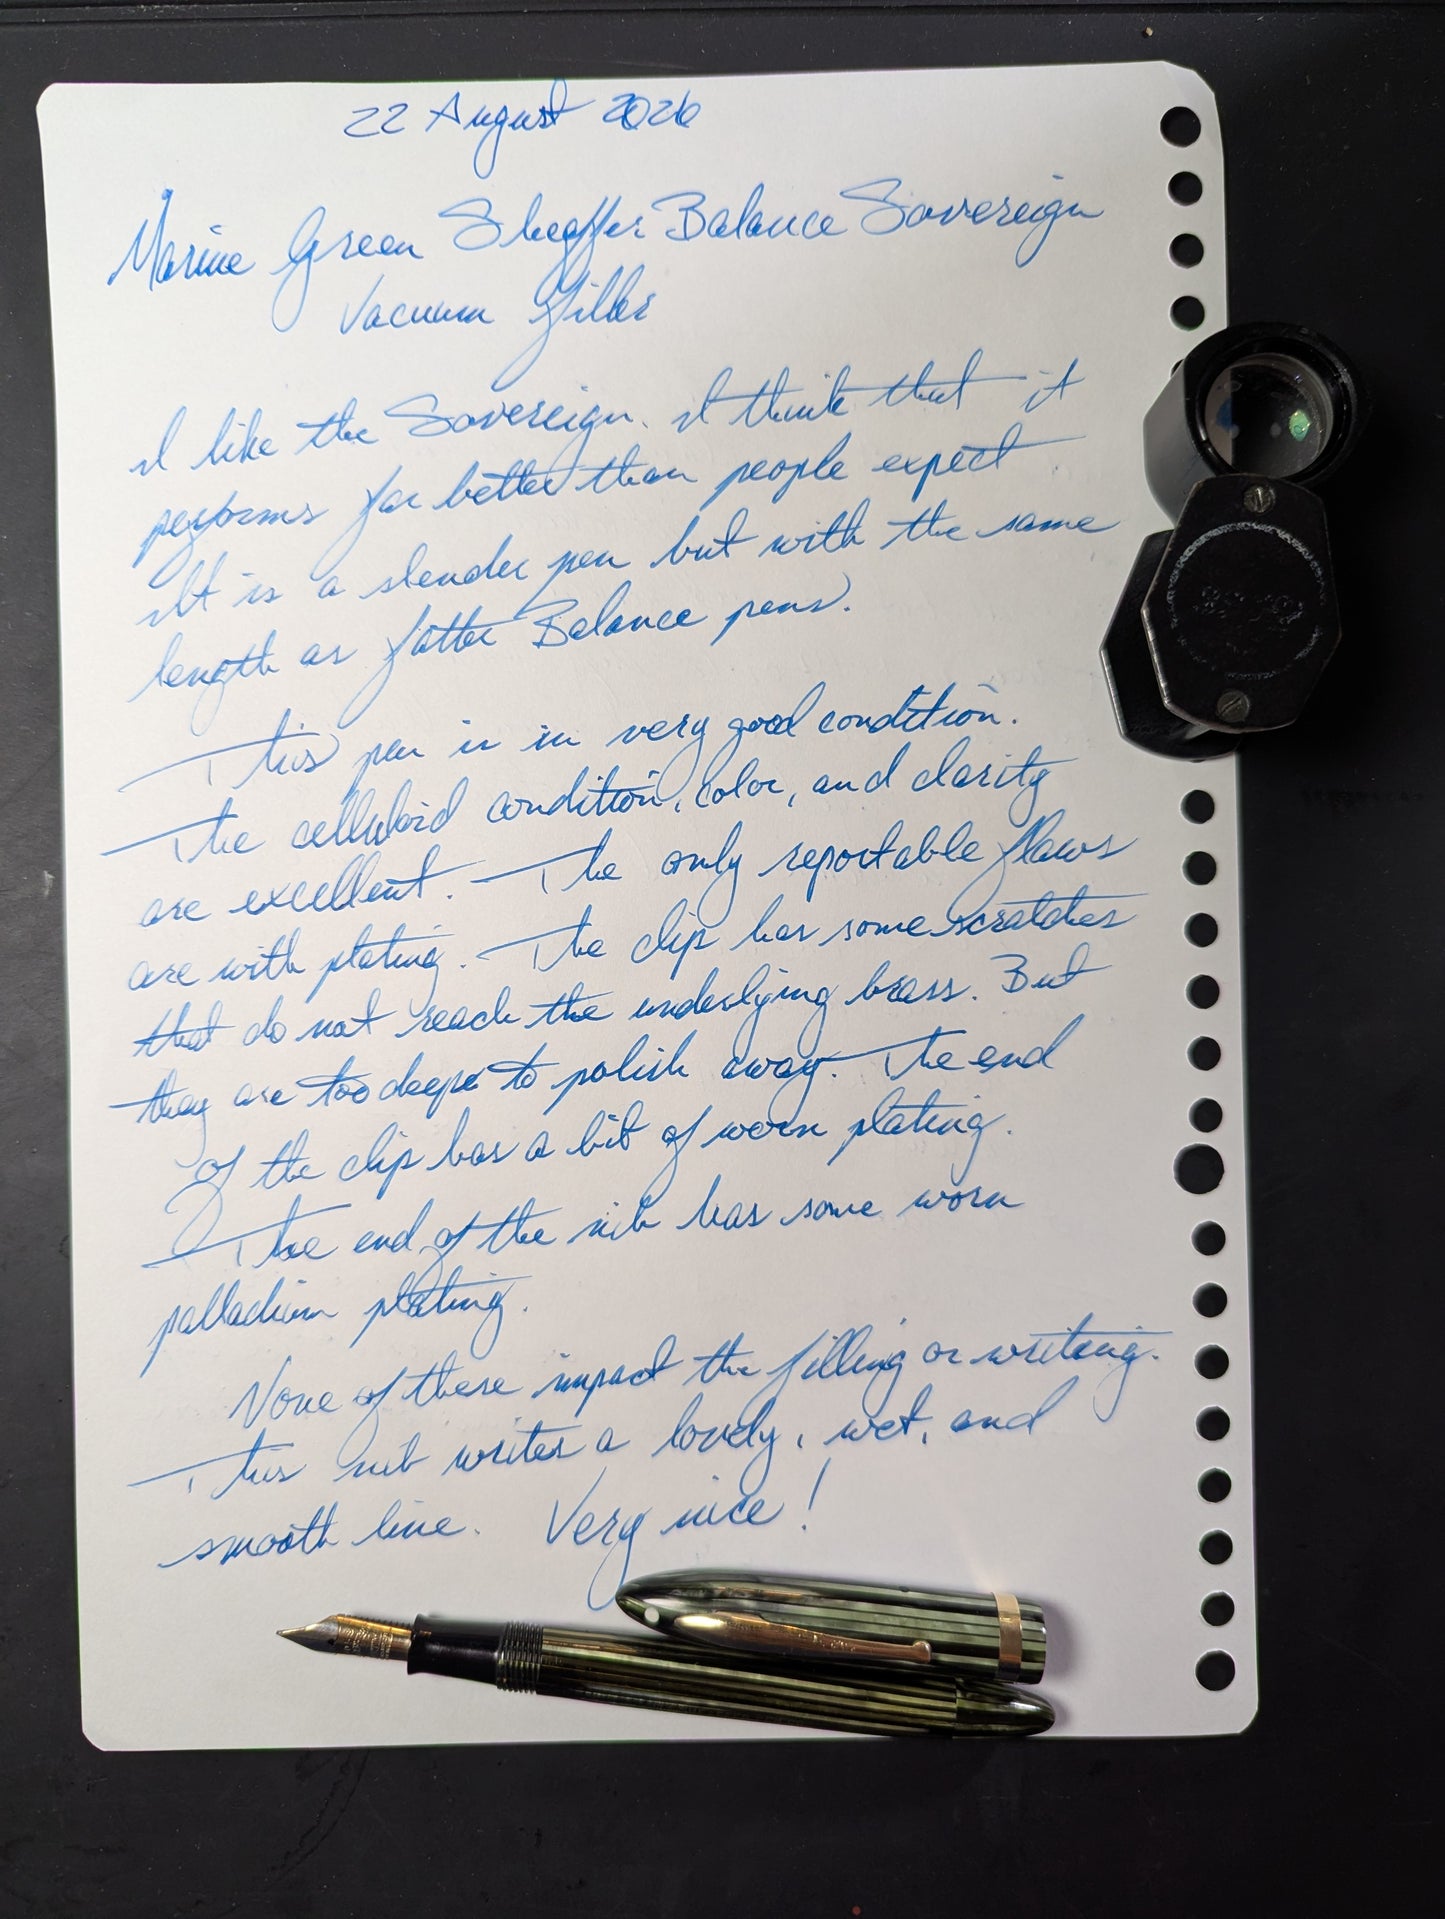 22 August 2026
Marine Green Sheaffer Balance Sovereign
Vacuum Filler
I like the Sovereign. I think that it
performs far better than people expect
It is a slender pen but with the same
length as fatter Balance pens.
This pen is in very good condition.
The celluloid condition, color, and clarity
are excellent. The only reportable flaws
are with plating. The clip has some scratches
that do not reach the underlying brass. But
they are too deepe to polish away. The end
of the clip has a bit of worn plating.
The end of the nib has some worn
palladium plating.
None of these impact the filling or writing.
This nib writes a lovely, wet, and
smooth line. Very nice!